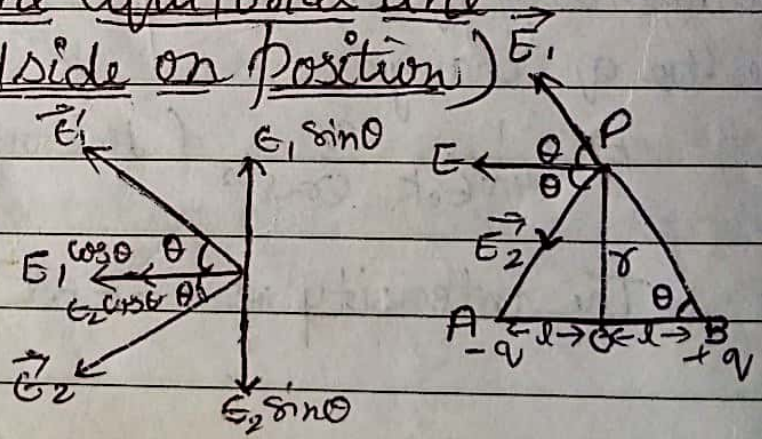 (side on position)
E₁
E₁ sinθ
E₁ cosθ θ
E₂ cosθ θ
E₂
E₂ sinθ
E₁
P
E θ
θ
E₂
r
θ
A ←l→ O ←l→ B
-q +q